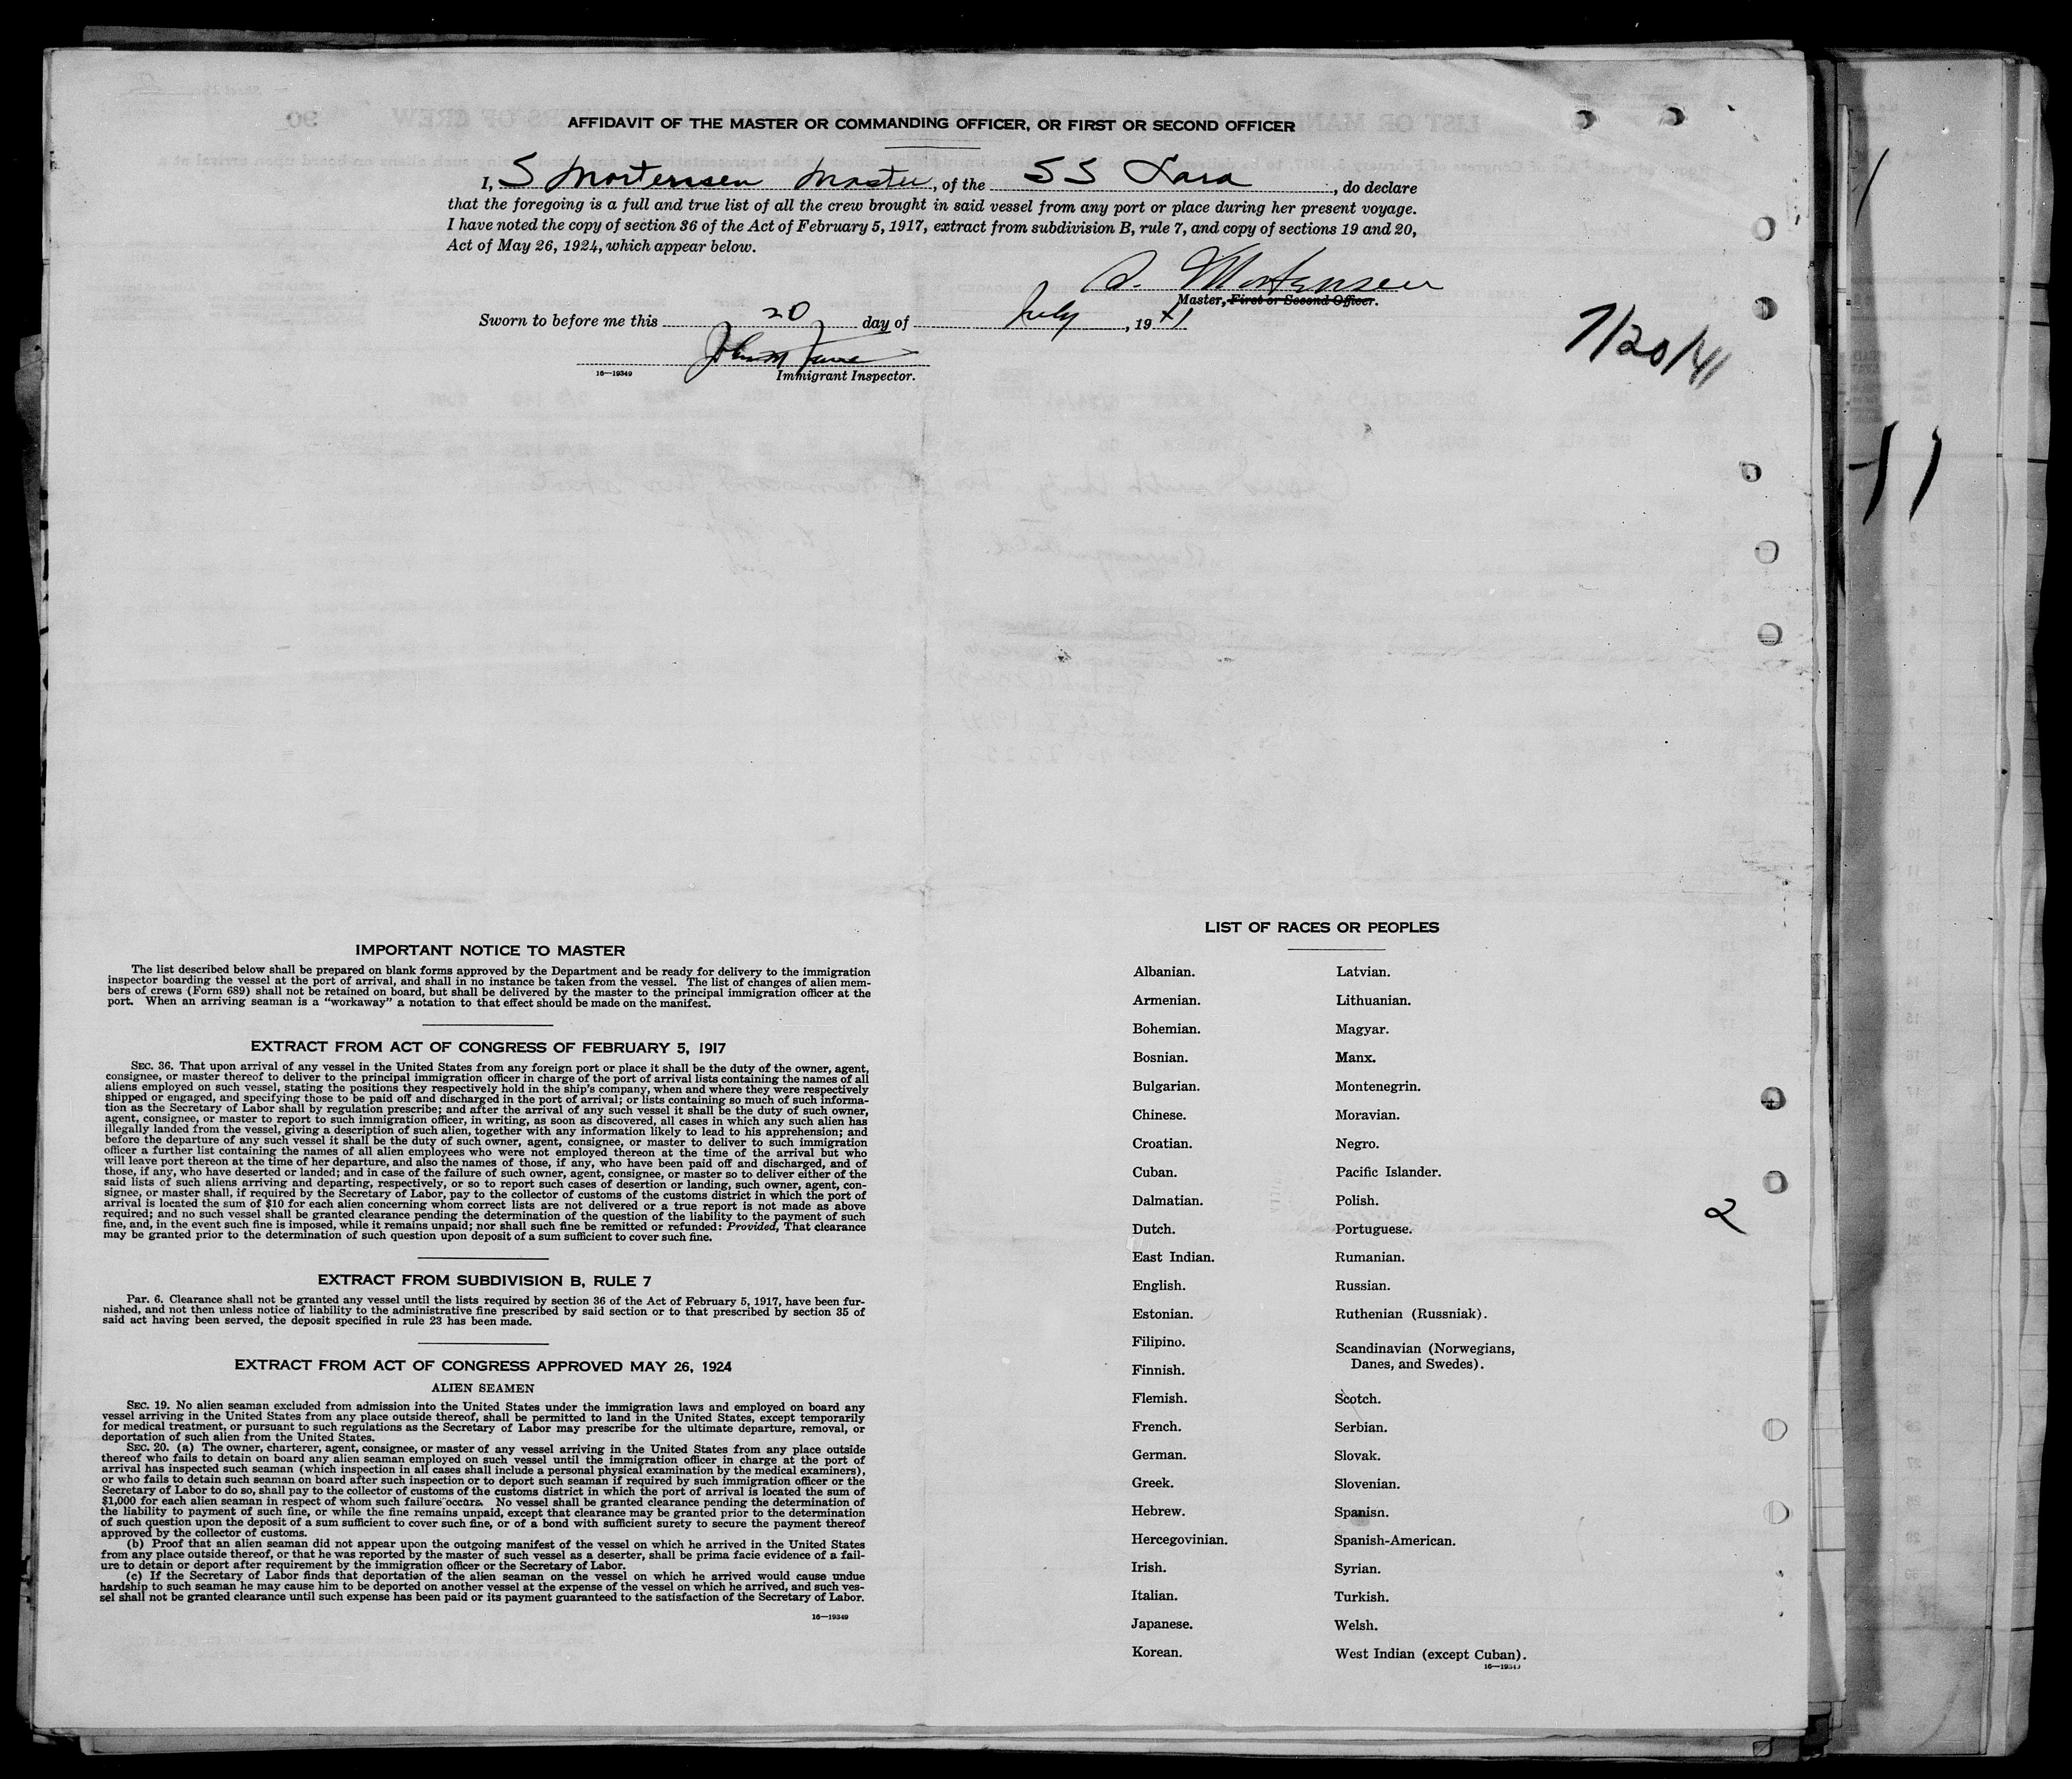 AFFIDAVIT OF THE MASTER OR COMMANDING OFFICER, OR FIRST OR SECOND OFFICER
I, S Mortensen Master, of the SS Lara, do declare
that the foregoing is a full and true list of all the crew brought in said vessel from any port or place during her present voyage.
I have noted the copy of section 36 of the Act of February 5, 1917, extract from subdivision B, rule 7, and copy of sections 19 and 20,
Act of May 26, 1924, which appear below.
S. Mortensen
Master, First or Second Officer.
Sworn to before me this 20 day of July, 1941
7/20/41
John M
16—19349 Immigrant Inspector.
IMPORTANT NOTICE TO MASTER
The list described below shall be prepared on blank forms approved by the Department and be ready for delivery to the immigration
inspector boarding the vessel at the port of arrival, and shall in no instance be taken from the vessel. The list of changes of alien mem-
bers of crews (Form 689) shall not be retained on board, but shall be delivered by the master to the principal immigration officer at the
port. When an arriving seaman is a "workaway" a notation to that effect should be made on the manifest.
EXTRACT FROM ACT OF CONGRESS OF FEBRUARY 5, 1917
SEC. 36. That upon arrival of any vessel in the United States from any foreign port or place it shall be the duty of the owner, agent,
consignee, or master thereof to deliver to the principal immigration officer in charge of the port of arrival lists containing the names of all
aliens employed on such vessel, stating the positions they respectively hold in the ship's company, when and where they were respectively
shipped or engaged, and specifying those to be paid off and discharged in the port of arrival; or lists containing so much of such informa-
tion as the Secretary of Labor shall by regulation prescribe; and after the arrival of any such vessel it shall be the duty of such owner,
agent, consignee, or master to report to such immigration officer, in writing, as soon as discovered, all cases in which any such alien has
illegally landed from the vessel, giving a description of such alien, together with any information likely to lead to his apprehension; and
before the departure of any such vessel it shall be the duty of such owner, agent, consignee, or master to deliver to such immigration
officer a further list containing the names of all alien employees who were not employed thereon at the time of the arrival but who
will leave port thereon at the time of her departure, and also the names of those, if any, who have been paid off and discharged, and of
those, if any, who have deserted or landed; and in case of the failure of such owner, agent, consignee, or master so to deliver either of the
said lists of such aliens arriving and departing, respectively, or so to report such cases of desertion or landing, such owner, agent, con-
signee, or master shall, if required by the Secretary of Labor, pay to the collector of customs of the customs district in which the port of
arrival is located the sum of $10 for each alien concerning whom correct lists are not delivered or a true report is not made as above
required; and no such vessel shall be granted clearance pending the determination of the question of the liability to the payment of such
fine, and, in the event such fine is imposed, while it remains unpaid; nor shall such fine be remitted or refunded: Provided, That clearance
may be granted prior to the determination of such question upon deposit of a sum sufficient to cover such fine.
EXTRACT FROM SUBDIVISION B, RULE 7
Par. 6. Clearance shall not be granted any vessel until the lists required by section 36 of the Act of February 5, 1917, have been fur-
nished, and not then unless notice of liability to the administrative fine prescribed by said section or to that prescribed by section 35 of
said act having been served, the deposit specified in rule 23 has been made.
EXTRACT FROM ACT OF CONGRESS APPROVED MAY 26, 1924
ALIEN SEAMEN
SEC. 19. No alien seaman excluded from admission into the United States under the immigration laws and employed on board any
vessel arriving in the United States from any place outside thereof, shall be permitted to land in the United States, except temporarily
for medical treatment, or pursuant to such regulations as the Secretary of Labor may prescribe for the ultimate departure, removal, or
deportation of such alien from the United States.
SEC. 20. (a) The owner, charterer, agent, consignee, or master of any vessel arriving in the United States from any place outside
thereof who fails to detain on board any alien seaman employed on such vessel until the immigration officer in charge at the port of
arrival has inspected such seaman (which inspection in all cases shall include a personal physical examination by the medical examiners),
or who fails to detain such seaman on board after such inspection or to deport such seaman if required by such immigration officer or the
Secretary of Labor to do so, shall pay to the collector of customs of the customs district in which the port of arrival is located the sum of
$1,000 for each alien seaman in respect of whom such failure occurs. No vessel shall be granted clearance pending the determination of
the liability to payment of such fine, or while the fine remains unpaid, except that clearance may be granted prior to the determination
of such question upon the deposit of a sum sufficient to cover such fine, or of a bond with sufficient surety to secure the payment thereof
approved by the collector of customs.
(b) Proof that an alien seaman did not appear upon the outgoing manifest of the vessel on which he arrived in the United States
from any place outside thereof, or that he was reported by the master of such vessel as a deserter, shall be prima facie evidence of a fail-
ure to detain or deport after requirement by the immigration officer or the Secretary of Labor.
(c) If the Secretary of Labor finds that deportation of the alien seaman on the vessel on which he arrived would cause undue
hardship to such seaman he may cause him to be deported on another vessel at the expense of the vessel on which he arrived, and such ves-
sel shall not be granted clearance until such expense has been paid or its payment guaranteed to the satisfaction of the Secretary of Labor.
16—19349
LIST OF RACES OR PEOPLES
Albanian.
Armenian.
Bohemian.
Bosnian.
Bulgarian.
Chinese.
Croatian.
Cuban.
Dalmatian.
Dutch.
East Indian.
English.
Estonian.
Filipino.
Finnish.
Flemish.
French.
German.
Greek.
Hebrew.
Hercegovinian.
Irish.
Italian.
Japanese.
Korean.
Latvian.
Lithuanian.
Magyar.
Manx.
Montenegrin.
Moravian.
Negro.
Pacific Islander.
Polish.
Portuguese.
Rumanian.
Russian.
Ruthenian (Russniak).
Scandinavian (Norwegians,
Danes, and Swedes).
Scotch.
Serbian.
Slovak.
Slovenian.
Spanish.
Spanish-American.
Syrian.
Turkish.
Welsh.
West Indian (except Cuban).
16—19349
2